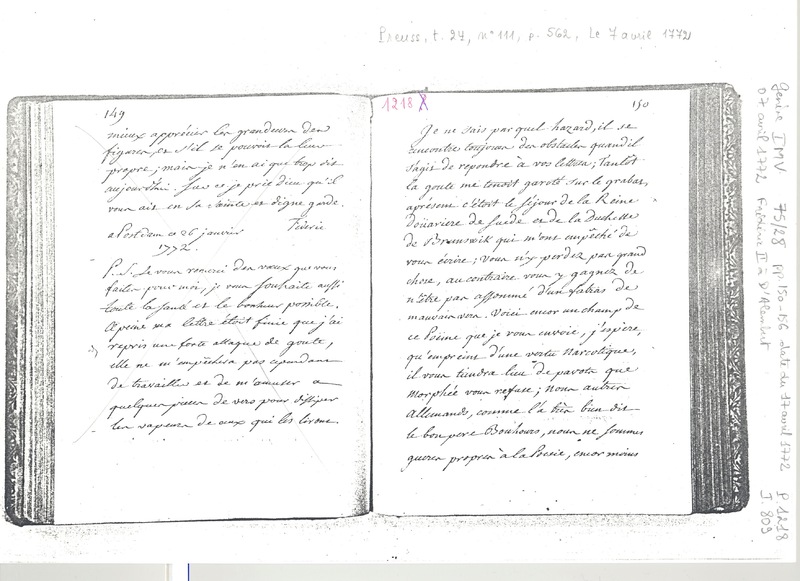 Preuss, t. 24, n° 111, p. 562, Le 7 avril 1772
149
mieux apprécier les grandeurs des
figures, et s'il se pouvoit la leur
propre; mais je n'en ai que trop dit
aujourd'hui. Sur ce je prie Dieu qu'il
vous ait en sa sainte et digne garde.
a Postdam ce 26 janvier Féderic
1772.
P. S. Je vous remercie des vœux que vous
faites pour moi, je vous souhaite aussi
toute la santé et le bonheur possible.
A peine ma lettre étoit finie que j'ai
repris une forte attaque de goute,
elle ne m'empêchera pas cependant
de travailler et de m'amuser a
quelques pieces de vers pour dissiper
les vapeurs de ceux qui les liront.
1218 X
150
Je ne sais par quel hazard, il se
rencontre toujours des obstacles quand il
s'agit de repondre à vos lettres; tantôt
la goute me tenoit garoté sur le grabat,
apresent c'étoit le séjour de la Reine
Douariere de Suede et de la Duchesse
de Brunswik qui m'ont empêché de
vous écrire; vous n'y perdez pas grand
chose, au contraire vous y gagnez de
n'être pas assommé d'un fatras de
mauvais vers. Voici encor un champ de
ce Poëme que je vous envoie, j'espere,
qu'empreint d'une vertu narcotique,
il vous tiendra lieu de pavots que
Morphée vous refuse; nous autres
Allemands, comme l'a très bien dit
le bon pere Bouhours, nous ne sommes
gueres propres à la Poesie, encor moins
Genève IMV 75/28 pp 150-156 daté du 17 avril 1772 P 1218
07 avril 1772 Frédéric II à D'Alembert I 809